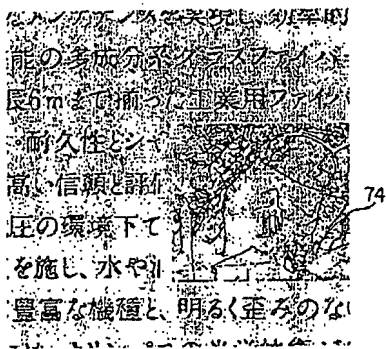 なメンテナンスを実現し、効率的
能の多成分系グラスファイバ
長6mまで揃った工業用ファイバ
耐久性とシャ
高い信頼と評価
圧の環境下で
を施し、水や
豊富な機種と、明るく歪みのない
74